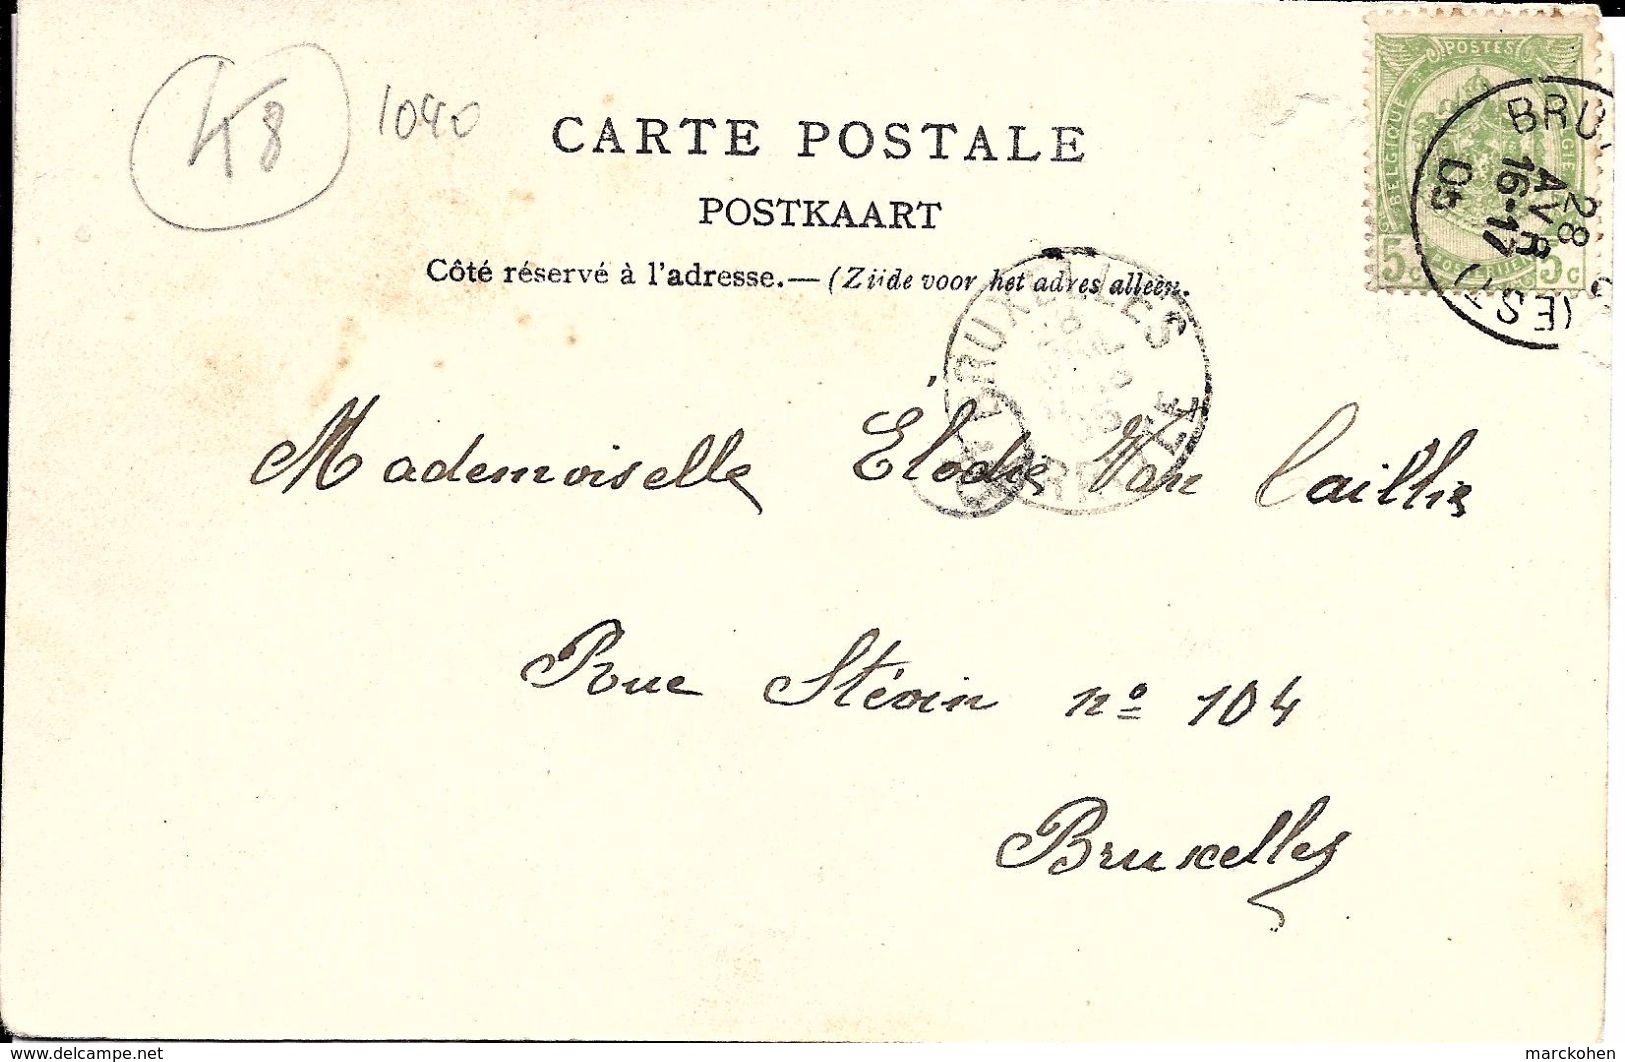 48
1040
CARTE POSTALE
POSTKAART
Côté réservé à l'adresse.— (Zijde voor het adres alleen.
POSTES
BELGIQUE
5c 5c
BRUX
28
AVR
16-17
05
(EST)
BRUXELLES
Mademoiselle Élodie Van Caillie
Rue Stévin nº 104
Bruxelles
www.delcampe.net
marckohen